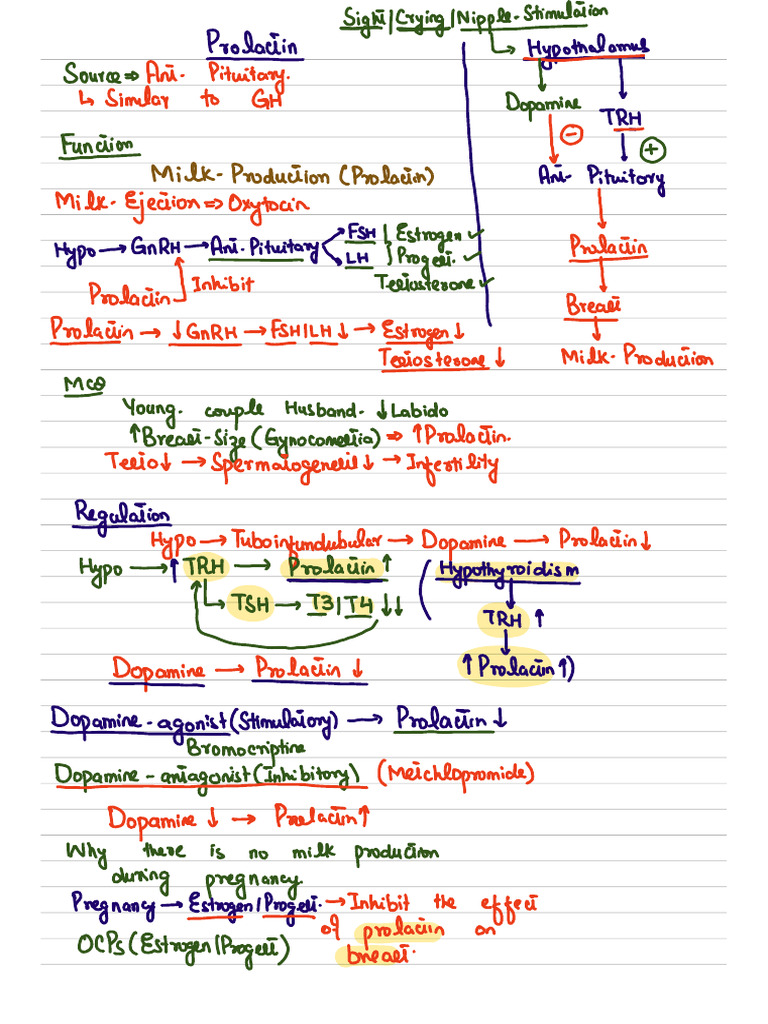 Prolactin
Source ⇒ Ant. Pituitary.
↳ Similar to GH
Function
Milk-Production (Prolactin)
Milk-Ejection ⇒ Oxytocin
Hypo → GnRH → Ant. Pituitary
FSH
LH
Estrogen ✓
Progest. ✓
Testosterone ✓
Prolactin
Inhibit
Prolactin → ↓ GnRH → FSH/LH ↓ → Estrogen ↓
Testosterone ↓
Sight/Crying/Nipple-Stimulation
↳ Hypothalamus
Dopamine
TRH
⊖
⊕
Ant. Pituitory
Prolactin
Breast
Milk-Production
MCQ
Young. couple Husband. ↓Labido
↑Breast-Size (Gynocomestia) ⇒ ↑Prolactin.
Testo↓ → Spermatogenesis↓ → Infertility
Regulation
Hypo → Tuboinfundubular → Dopamine → Prolactin ↓
Hypo → ↑ TRH → Prolactin ↑
↳ TSH → T3/T4 ↓↓
(Hypothyroidism
TRH ↑
↑ Prolactin ↑)
Dopamine → Prolactin ↓
Dopamine-agonist (Stimulatory) → Prolactin ↓
Bromocriptine
Dopamine-antagonist (Inhibitory) (Metchlopromide)
Dopamine ↓ → Prolactin ↑
Why there is no milk production
during pregnancy.
Pregnancy → Estrogen/Progest. → Inhibit the effect
of prolactin on
breast.
OCPs (Estrogen/Progest)